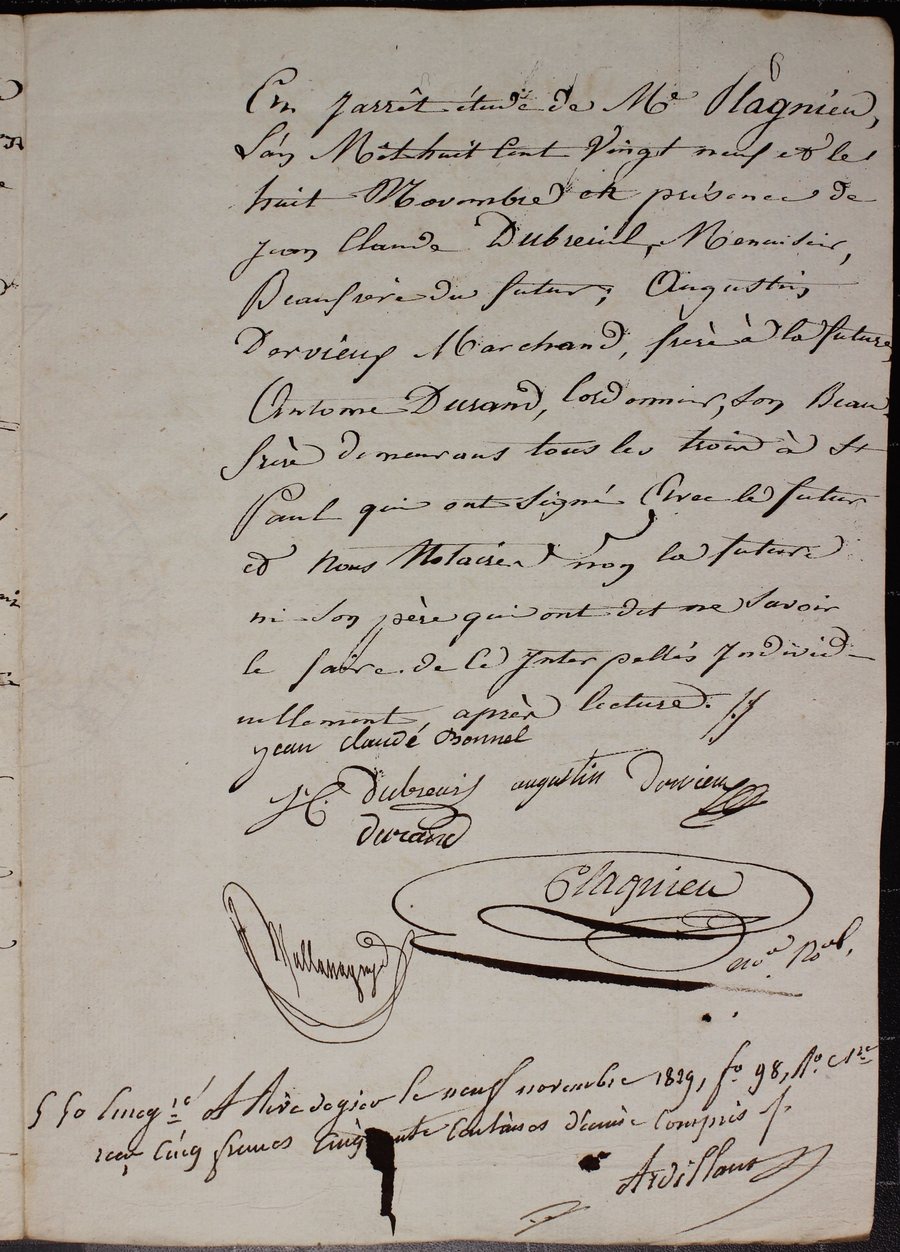 6
En Jarrêt étude de Me Plagnieu,
L'an Mil huit Cent Vingt neuf et le
huit Novembre en présence de
Jean Claude Dubreuil, Menuisier,
Beaufrère du futur, Augustin
Dervieux Marchand, frère à la future,
Antoine Durand, Cordonnier, son Beau
frère demeurans tous les trois à St
Paul qui ont signé Avec le futur
et Nous Notaires non la future
ni son père qui ont dit ne savoir
le faire de ce Interpellés Individ-
uellement après lecture.
jean claude Bonnel
J. C. dubreuil augustin Dervieux
durand
Plagnieu
nore Roal.
Enregtré A Rive de gier le neuf novembre 1829, fo 98, Ro C 1re
reçu cinq francs cinquante centimes dixme compris
Ardillon